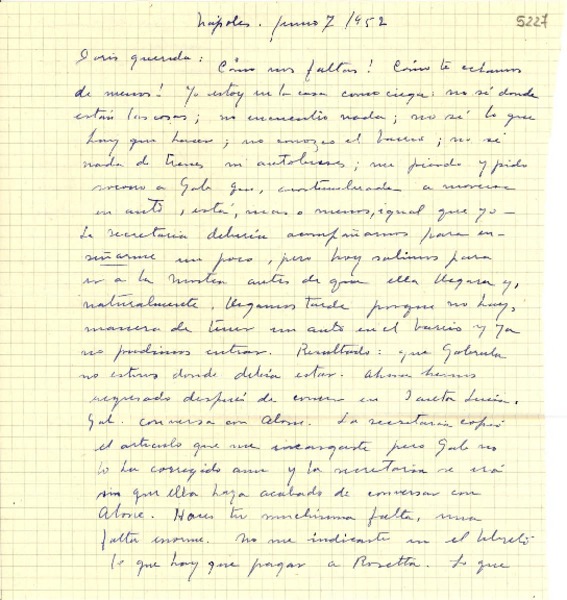 Nápoles. junio 7/1952
5227
Doris querida: Cómo nos faltas! Cómo te echamos
de menos! Yo estoy en la casa como ciega: no sé donde
están las cosas; no encuentro nada; no sé lo que
hay que hacer; no conozco el barrio; no sé
nada de trenes ni autobuses; me pierdo y pido
socorro a Gab que, acostumbrada a moverse
en auto, está, mas o menos, igual que yo—
La secretaria debería acompañarnos para en-
señarme un poco, pero hoy salimos para
ir a la mostra antes de que ella llegara y,
naturalmente, llegamos tarde porque no hay
manera de tener un auto en el barrio y ya
no pudimos entrar. Resultado: que Gabriela
no estuvo donde debía estar. Ahora hemos
regresado después de comer en Santa Lucía.
Gab. conversa con Alone. La secretaria copió
el artículo que me encargaste pero Gab no
lo ha corregido aun y la secretaria se irá
sin que ella haya acabado de conversar con
Alone. Haces tu muchísima falta, una
falta enorme. No me indicaste en el
lo que hay que pagar a Rosetta. Lo que